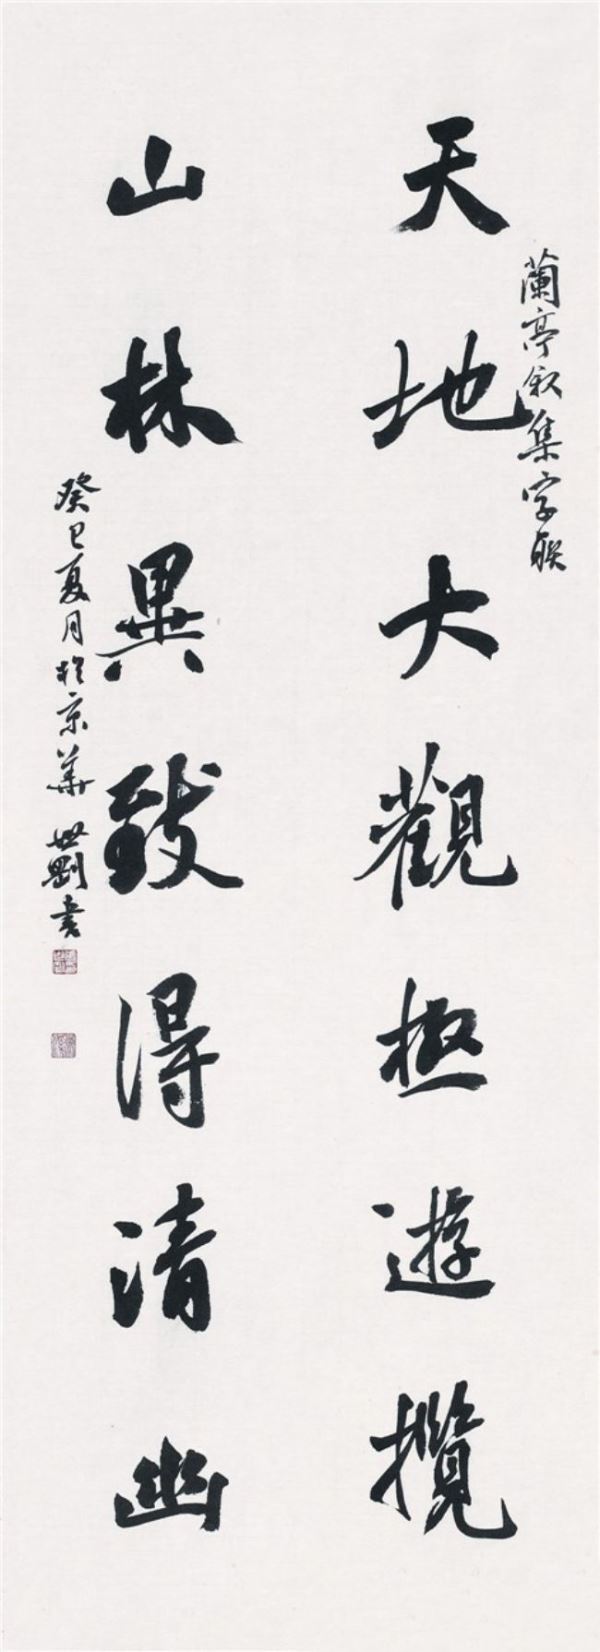 蘭亭叙集字联
天地大觀極遊攬
山林異致得清幽
癸巳夏月於京華 世剛書